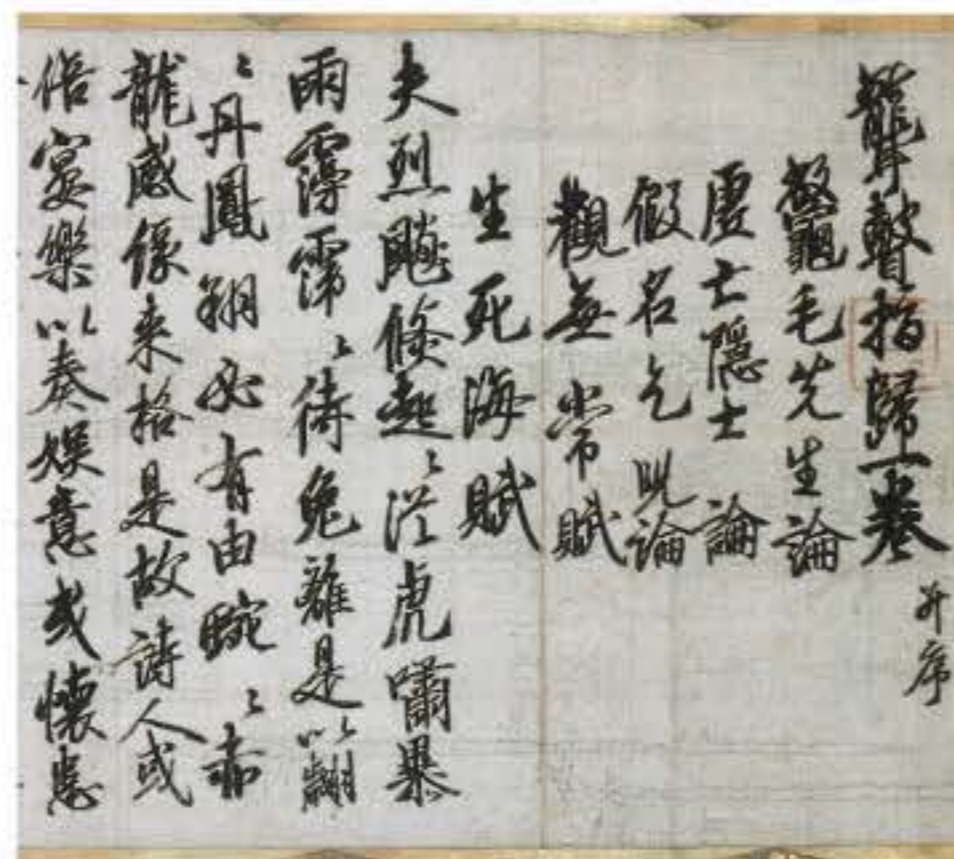 聾瞽指歸一卷 并序
鼇毛先生論
虚亡隱士論
假名乞児論
觀無常賦
生死海賦
夫烈飈倏起〻從虎嘯暴
雨霶霈〻待兔離是以翩
〻丹鳳翔必有由蜿〻赤
龍感縁来格是故詩人或
倍宴樂以奏娯意或懷患